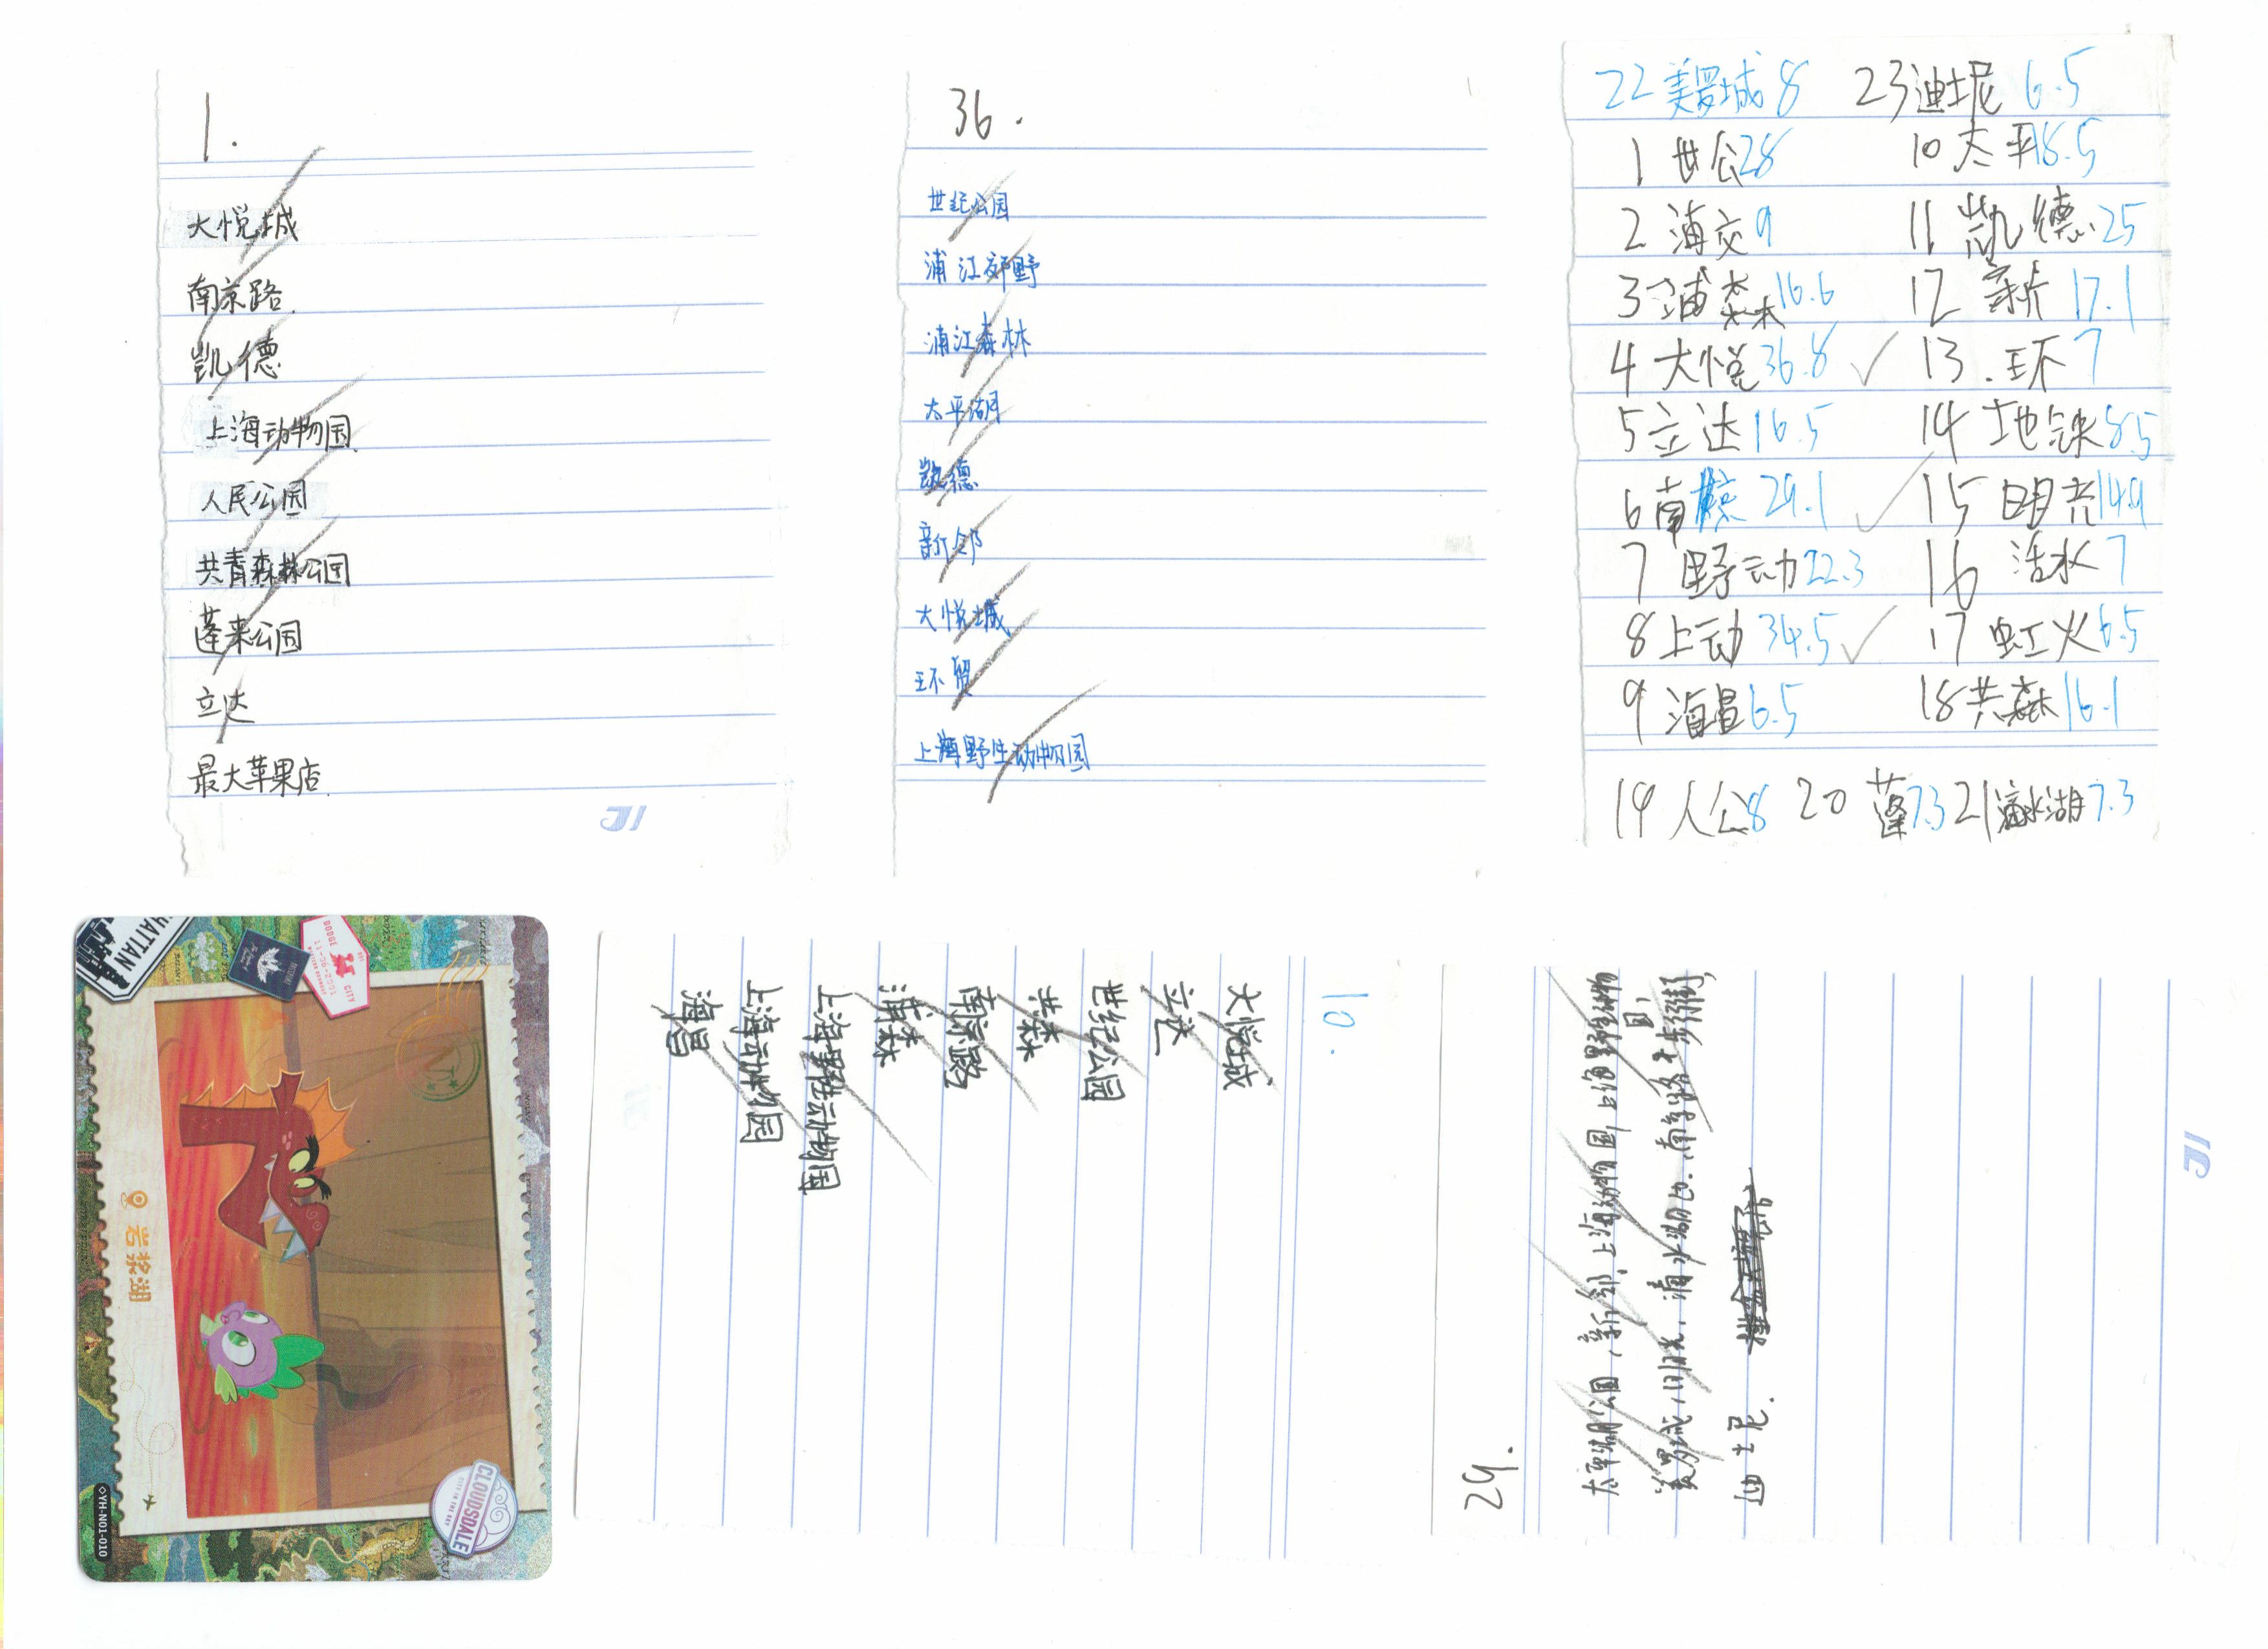 1.
大悦城
南京路.
凯德
上海动物园.
人民公园
共青森林公园
蓬来公园
立达
最大苹果店.
36.
世纪公园
浦江郊野
浦江森林
太平湖
凯德
新邻
大悦城
环贸
上海野生动物园
22 美罗城 8 23 迪士尼 6.5
1 世公 28 10 太平 18.5
2 海交 9 11 凯德 25
3 浦森 16.6 12 新 17.1
4 大悦 36.8 ✓ 13. 环 7
5 立达 16.5 14 地铁 8.5
6 南京 29.1 ✓ 15 明光 14.9
7 野动 22.3 16 活水 7
8 上动 34.5 ✓ 17 虹火 6.5
9 海昌 6.5 18 共森 16.1
19 人公 8 20 蓬 7.3 21 滴水湖 7.3
HATTAN
CITY
岩浆湖
CLOUDSDALE
CITY IN THE SKY
◇YH-N01-010
10.
大悦城
立达
世纪公园
共森
南京路
浦森林
上海野生动物园
上海动物园
海昌
29.
太平湖公园，新邻，上海动物园，上海野生动物园，
美罗城，日月光，滴水湖
迪士尼.